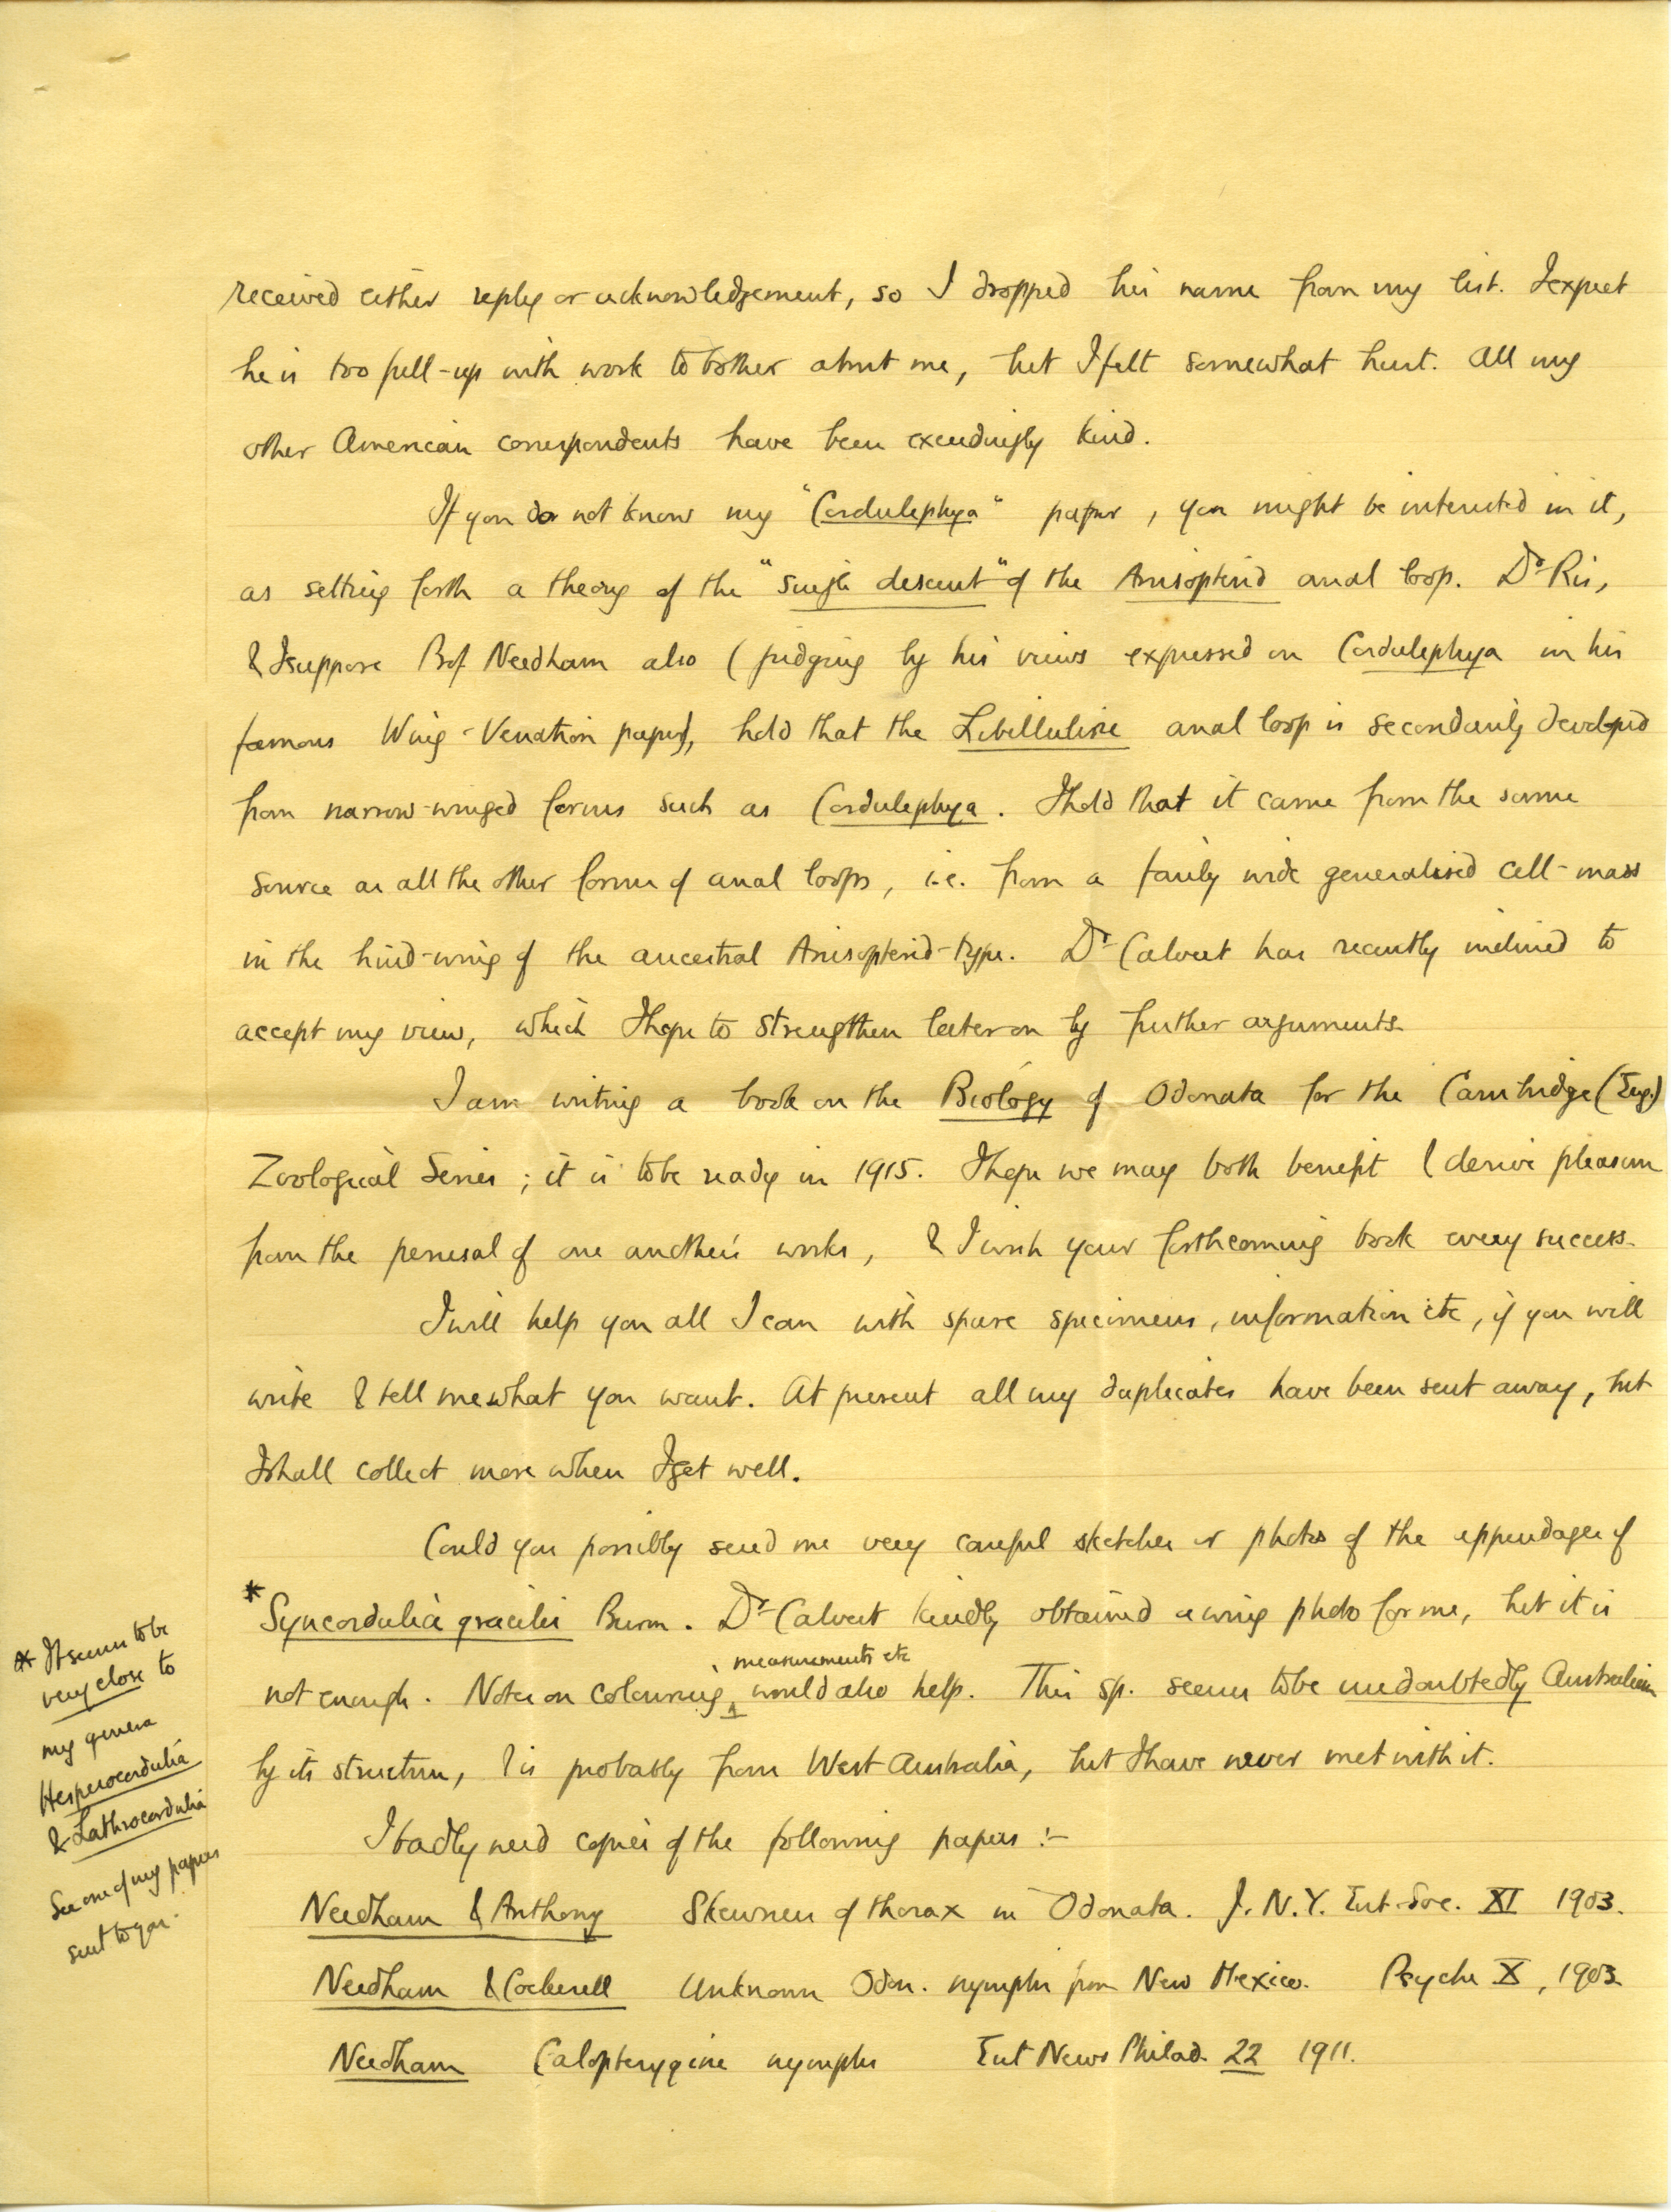 received either reply or acknowledgement, so I dropped his name from my list. I expect
he is too full-up with work to bother about me, but I felt somewhat hurt. All my
other American correspondents have been exceedingly kind.
If you do not know my "Cordulephya" paper, you might be interested in it,
as setting forth a theory of the "single descent" of the Anisopterid anal loop. Dr Ris,
& I suppose Prof Needham also (judging by his views expressed on Cordulephya in his
famous Wing-Venation paper), hold that the Libelluline anal loop is secondarily developed
from narrow-winged forms such as Cordulephya. I hold that it came from the same
source as all the other forms of anal loops, i.e. from a fairly wide generalised cell-mass
in the hind-wing of the ancestral Anisopterid-type. Dr Calvert has recently inclined to
accept my view, which I hope to strengthen later on by further arguments.
I am writing a book on the Biology of Odonata for the Cambridge (Eng.)
Zoological Series; it is to be ready in 1915. I hope we may both benefit & derive pleasure
from the perusal of one another's works, & I wish your forthcoming book every success.
I will help you all I can with spare specimens, information etc, if you will
write & tell me what you want. At present all my duplicates have been sent away, but
I shall collect more when I get well.
Could you possibly send me very careful sketches or photos of the appendages of
* Syncordulia gracilis Burm. Dr Calvert kindly obtained a wing photo for me, but it is
not enough. Notes on colouring, measurements etc would also help. This sp. seems to be undoubtedly Australian
by its structure, & is probably from West Australia, but I have never met with it.
I badly need copies of the following papers :-
Needham & Anthony Skewness of thorax in Odonata. J. N.Y. Ent. Soc. XI 1903.
Needham & Cockerell Unknown Odon. nymphs from New Mexico. Psyche X, 1903
Needham Calopterygine nymphs Ent News Philad. 22 1911.
* It seems to be
very close to
my genera
Hesperocordulia
& Lathrocordulia
See one of my papers
sent to you.